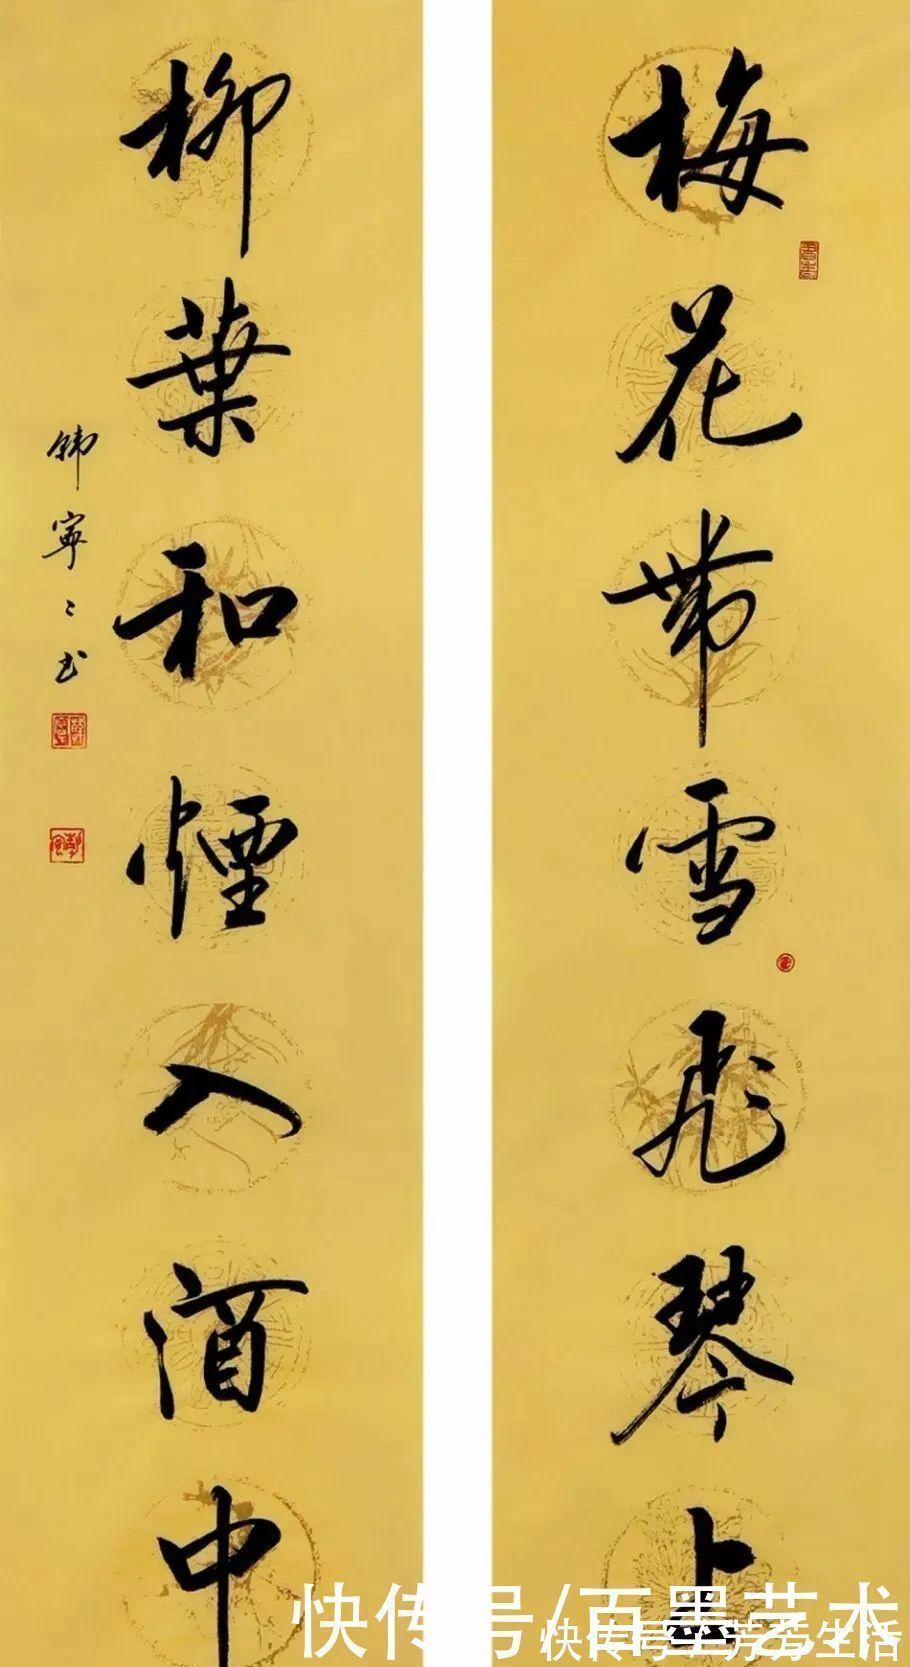 梅花带雪飛琴上
柳葉和煙入酒中
韩寧寧书
快传号/百墨艺术
快传号/芳芳生活